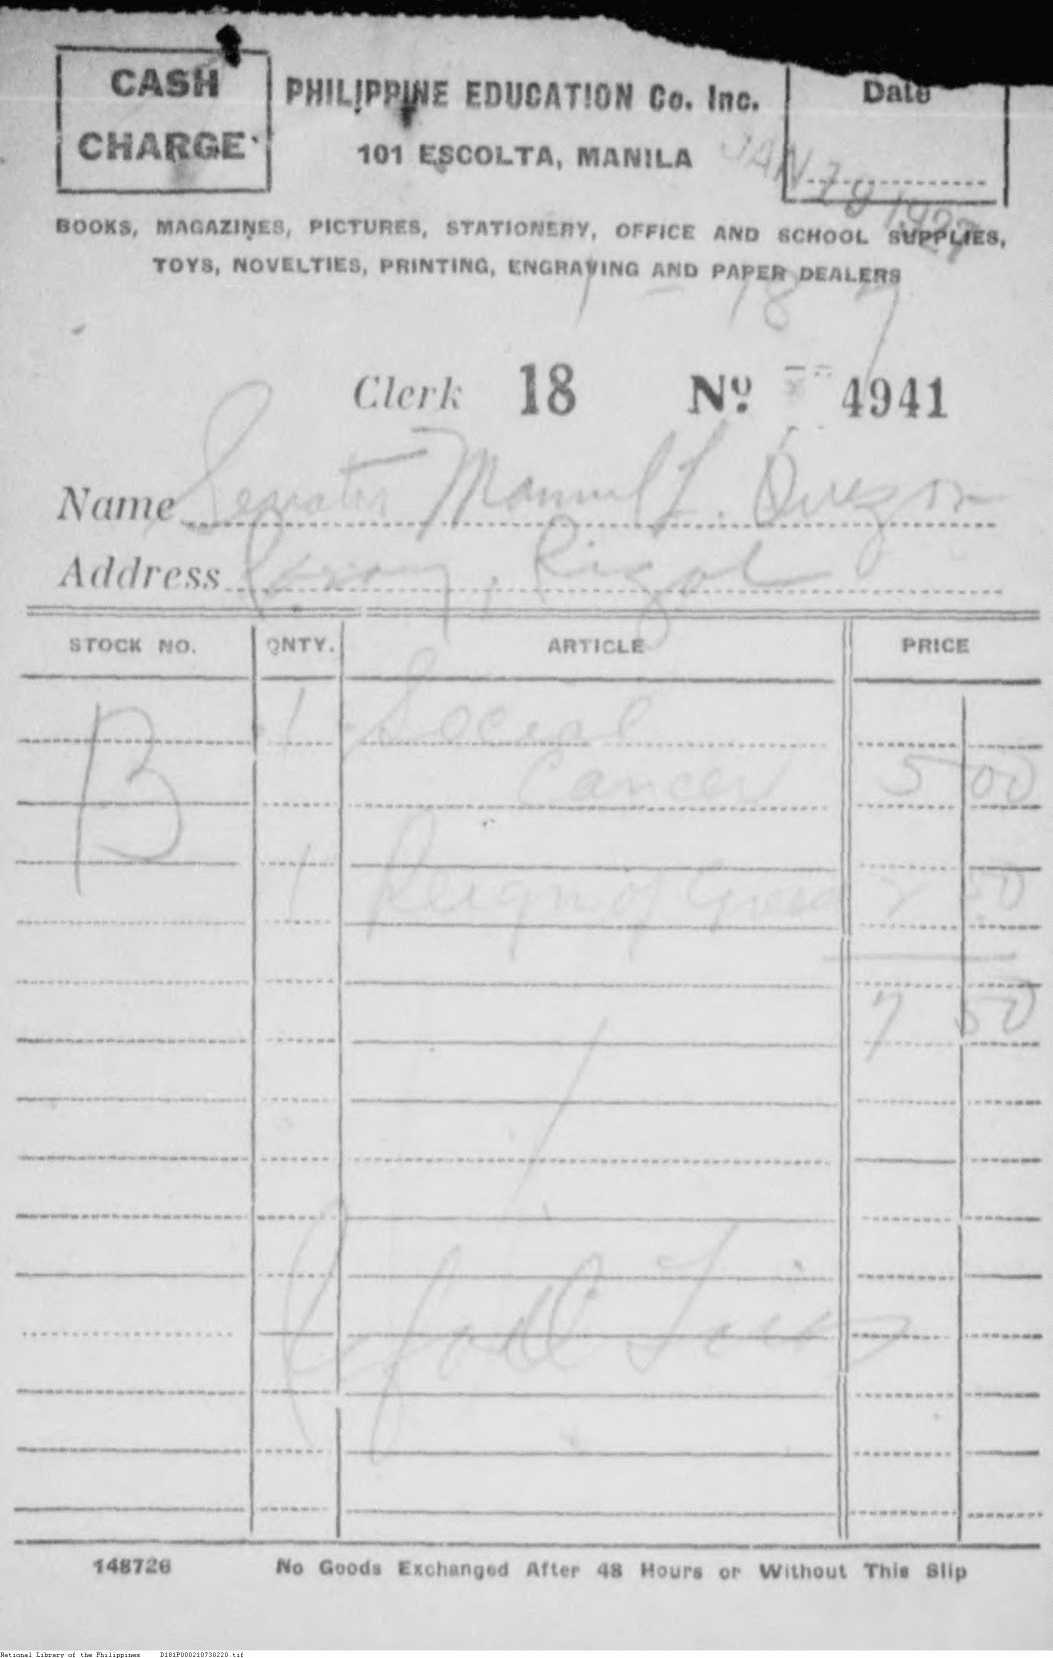 CASH
CHARGE
PHILIPPINE EDUCATION Co. Inc.
101 ESCOLTA, MANILA
Date
JAN 19 1927
BOOKS, MAGAZINES, PICTURES, STATIONERY, OFFICE AND SCHOOL SUPPLIES,
TOYS, NOVELTIES, PRINTING, ENGRAVING AND PAPER DEALERS
1 - 18 7
Clerk 18 No. 4941
Name Senator Manuel L. Quezon
Address Pasay, Rizal
STOCK NO. QNTY. ARTICLE PRICE
B 1 Social
Cancer 5 00
1 Reign of Greed 2 50
7 50
148726 No Goods Exchanged After 48 Hours or Without This Slip
National Library of the Philippines D181P000210738220.tif